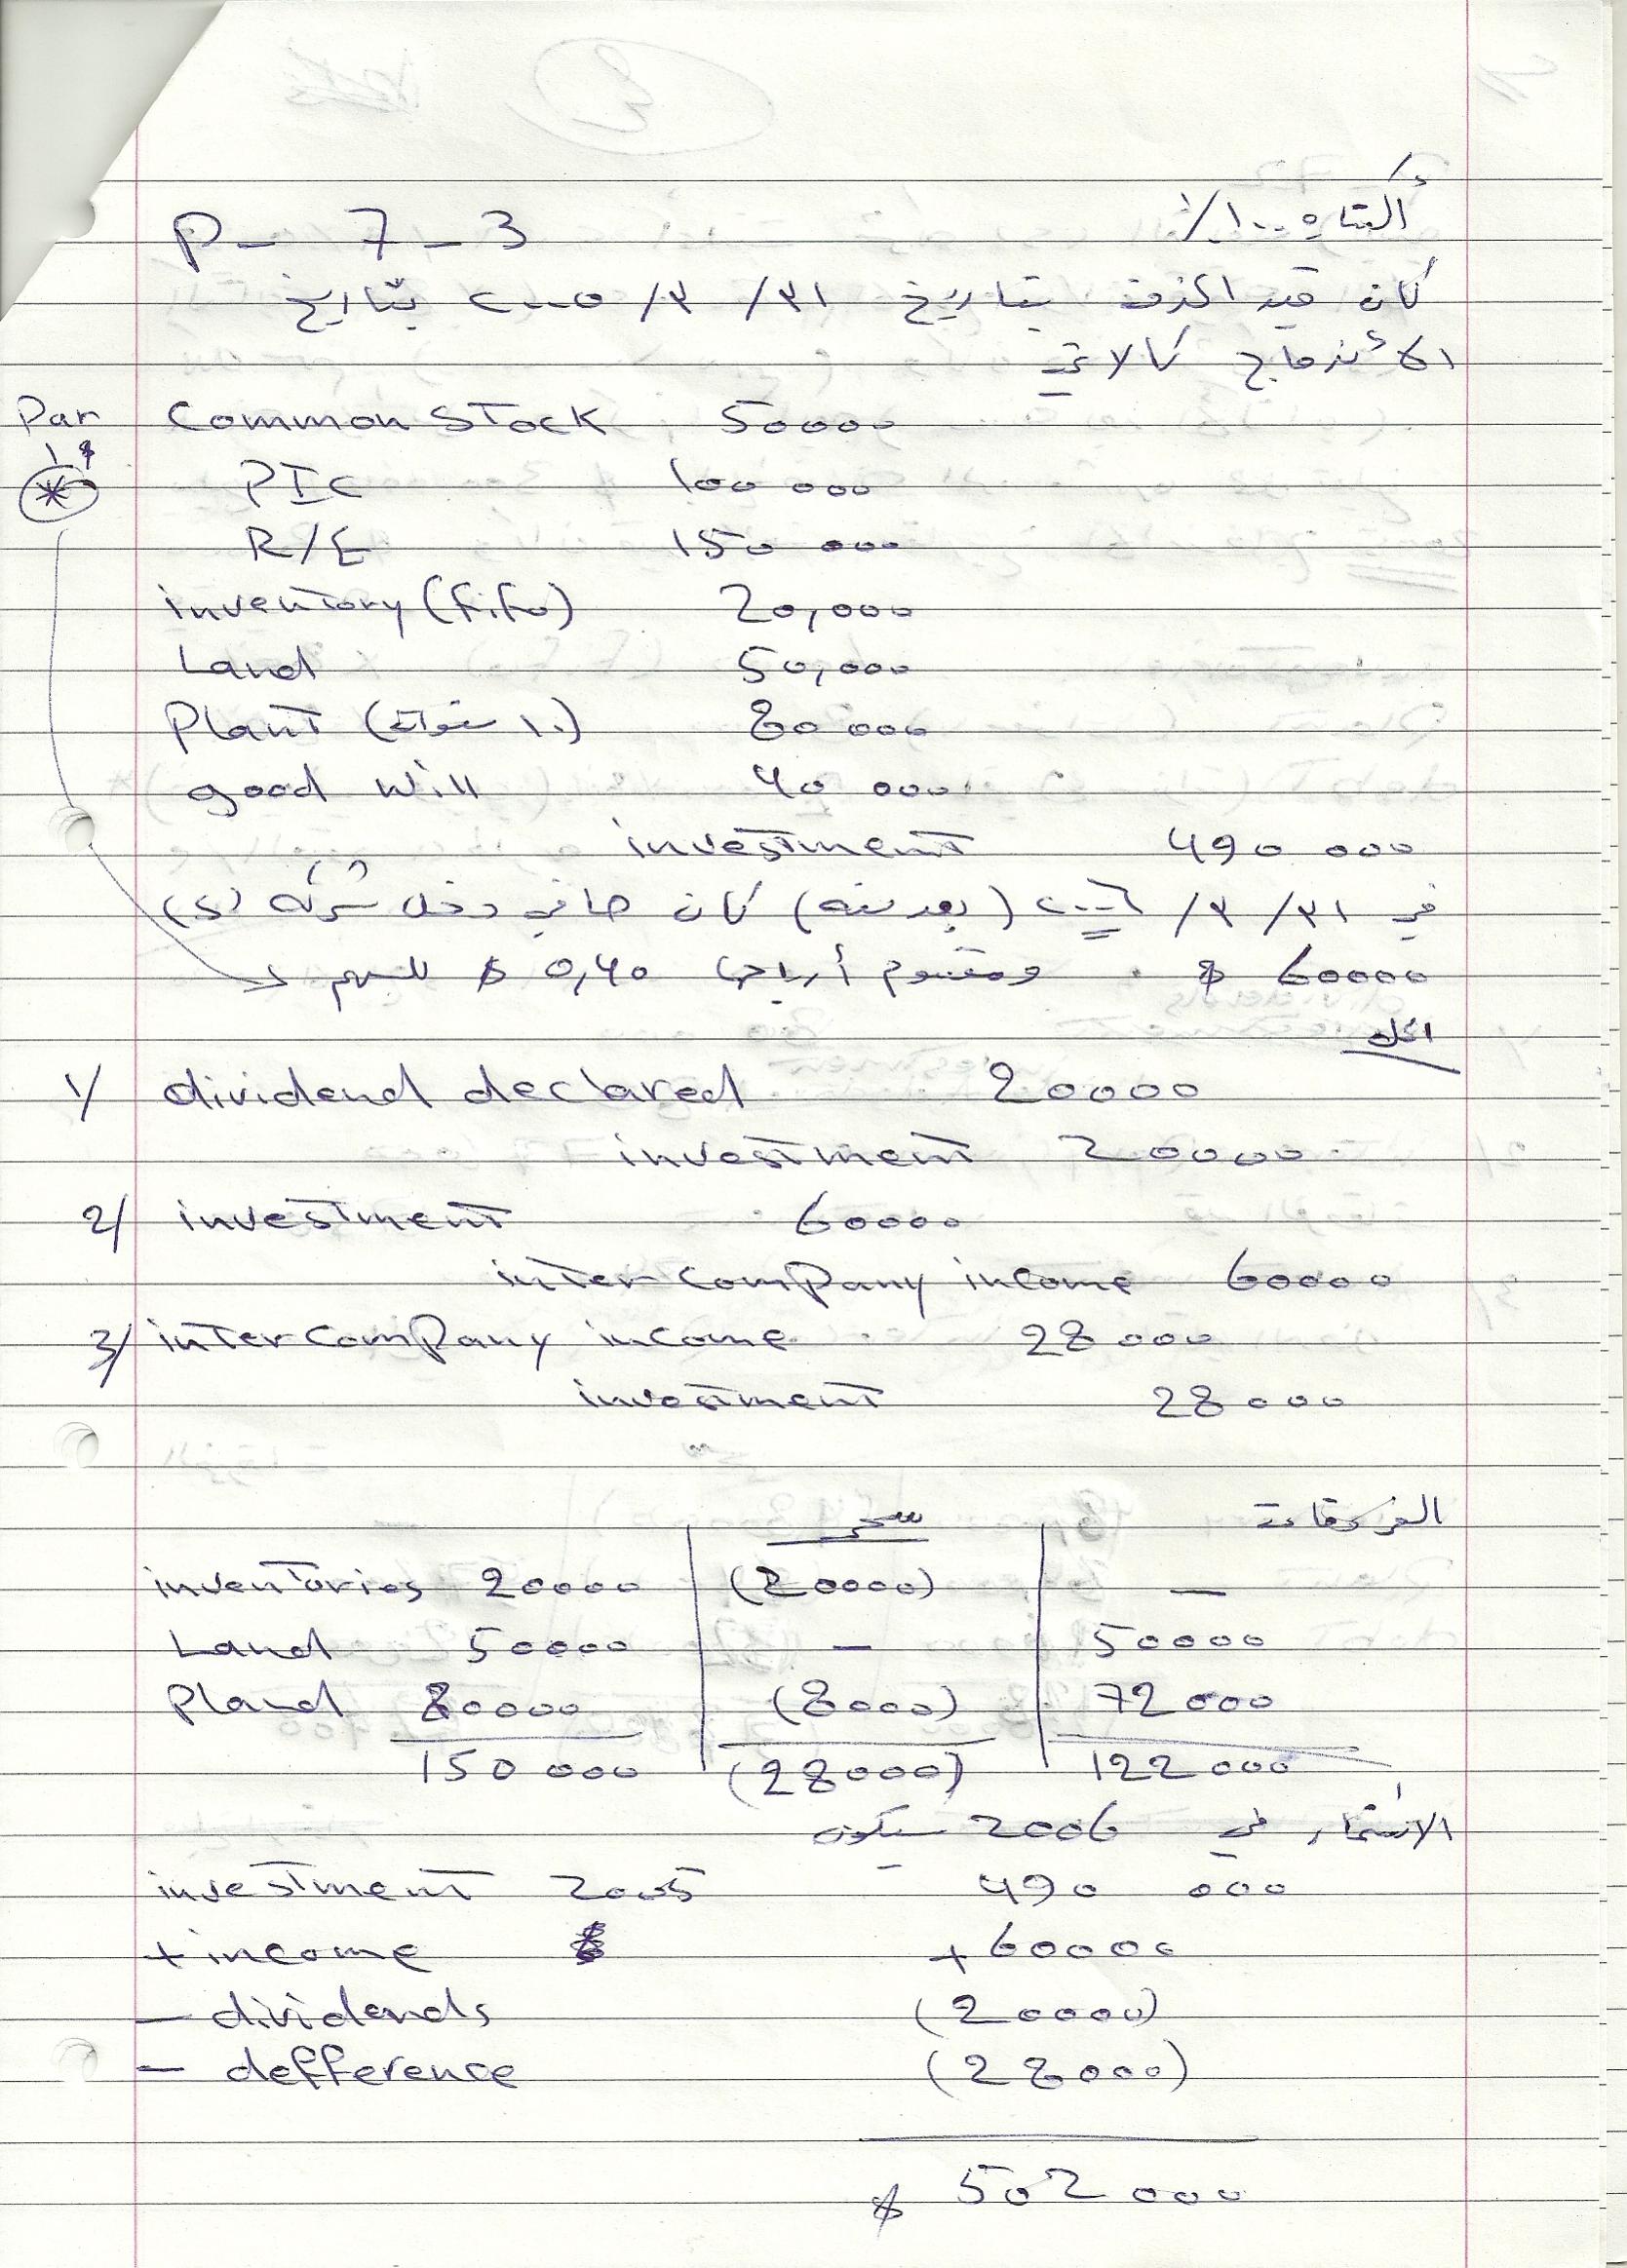 أكتتاب ١٠٠٪
P - 7 - 3
كان قيد الحذف بتاريخ ٣١ / ٣ / ٢٠٠٥ بتاريخ
الأندماج كالاتي
Par 1$ Common Stock 50000
* PIC 100 000
R/E 150 000
inventory (fifo) 20,000
Land 50,000
Plant (١٠ سنوات) 80 000
good will 40 000
investment 490 000
في ٣١ / ٣ / ٢٠٠٦ (بعد سنه) كان صافي دخل شركه (S)
60000 $ ومقسوم أرباحها 0,40 $ للسهم
الحل
1/ dividend declared 20000
investment 20000
2/ investment 60000
inter company income 60000
3/ inter company income 28 000
investment 28 000
الفروقات
inventories 20000 (20000) —
Land 50000 — 50000
Pland 80000 (8000) 72 000
150 000 (28000) 122 000
الاستثمار في 2006 سيكون
investment 2005 490 000
+ income +60000
— dividends (20000)
— defference (28000)
$ 502 000